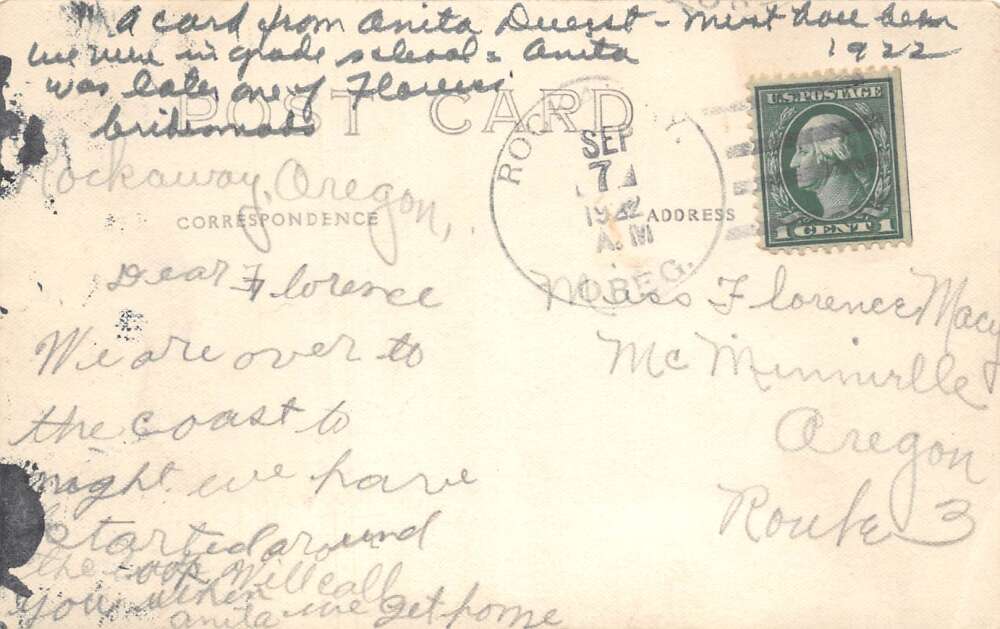 A card from Anita Duerst - Must have been
we were in grade school - Anita 1922
was later one of Florence's
bridesmaids
POST CARD
Rockaway, Oregon,
CORRESPONDENCE
ADDRESS
U.S. POSTAGE
1 CENT 1
ROCK
SEP
7
1922
A.M
OREG.
Dear Florence
We are over to
the coast to
night we have
started around
the loop Will call
you when we get home
Anita
Miss Florence Macy
McMinnville
Oregon
Route 3